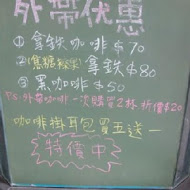 外帶优惠
① 拿鉄咖啡$70
② (焦糖) 拿鉄$80
③ 黑咖啡$50
P.S. 外帶咖啡一次購第2杯折價$20
咖啡掛耳包買五送一
特價中